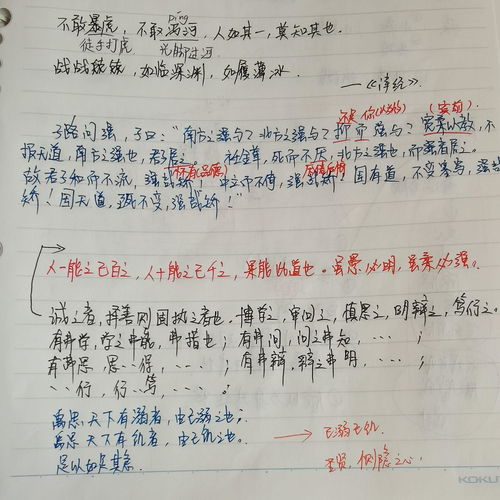 不敢暴虎，不敢冯河，人知其一，莫知其他。
píng
徒手打虎 光脚过河
战战兢兢，如临深渊，如履薄冰。
——《诗经》.
还是你(必如) (宽容)
子路问强，子曰："南方之强与？北方之强与？抑而强与？宽柔以教，不
报无道，南方之强也，君子居之。衽金革，死而不厌，北方之强也，而强者居之。
故君子和而不流，强哉矫！中立而不倚，强哉矫！国有道，不变塞焉，强哉
矫！国无道，至死不变，强哉矫！"
人一能之己百之，人十能之己千之，果能此道也。虽愚必明，虽柔必强。
诚之者，择善而固执之者也。博学之，审问之，慎思之，明辩之，笃行之。
有弗学，学之弗能，弗措也；有弗问，问之弗知，……；
有弗思，思……得，……；有弗辩，辩之弗明，……；
……行，行……笃，……；
禹思天下有溺者，由己溺之也；
稷思天下有饥者，由己饥之也。 → 己溺己饥.
是以如是其急. 圣贤，恻隐之心.
KOKU